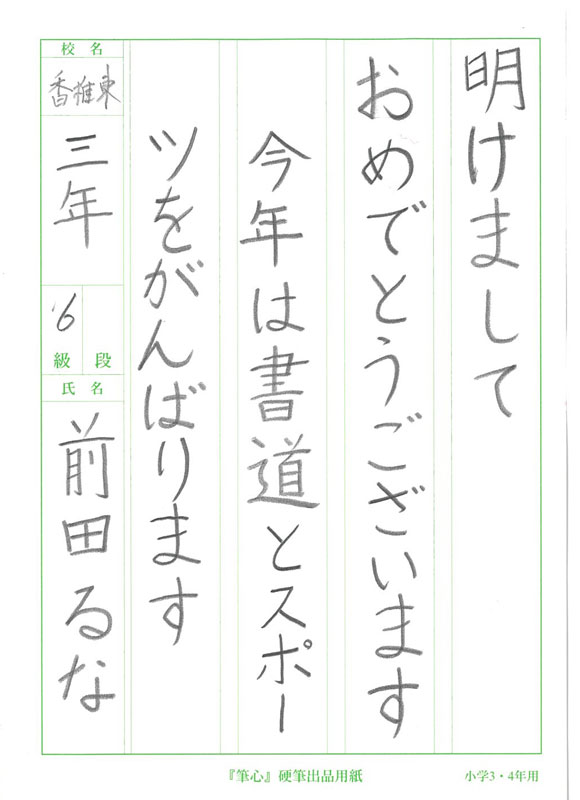 明けまして
おめでとうございます
今年は書道とスポー
ツをがんばります
校名
香椎東
三年
6
級段
氏名
前田るな
『筆心』硬筆出品用紙
小学3・4年用